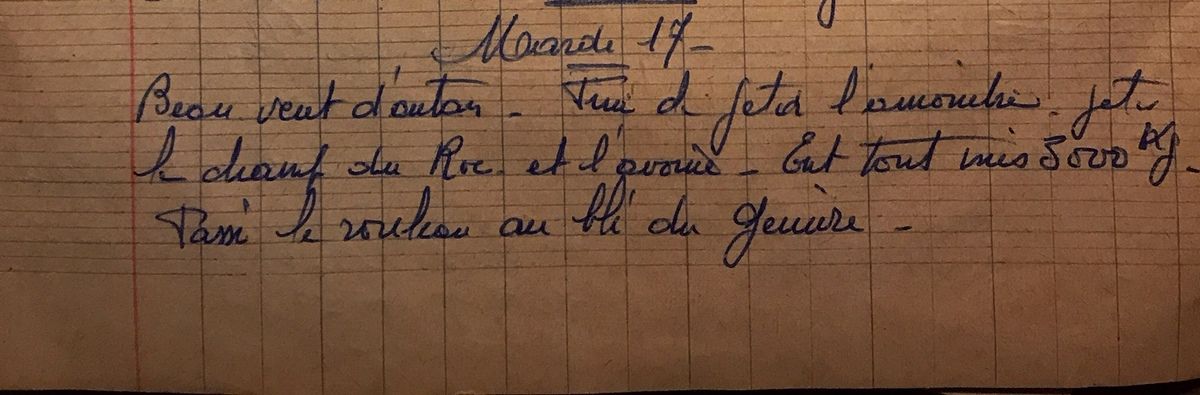 Mardi 17 -
Beau vent d'autan - Fini de jeter l'amonitre. jeté
le champ du Roc et l'avoine - Ent tout mis 5000 Kg -
Passé le rouleau au blé du Genièvre -